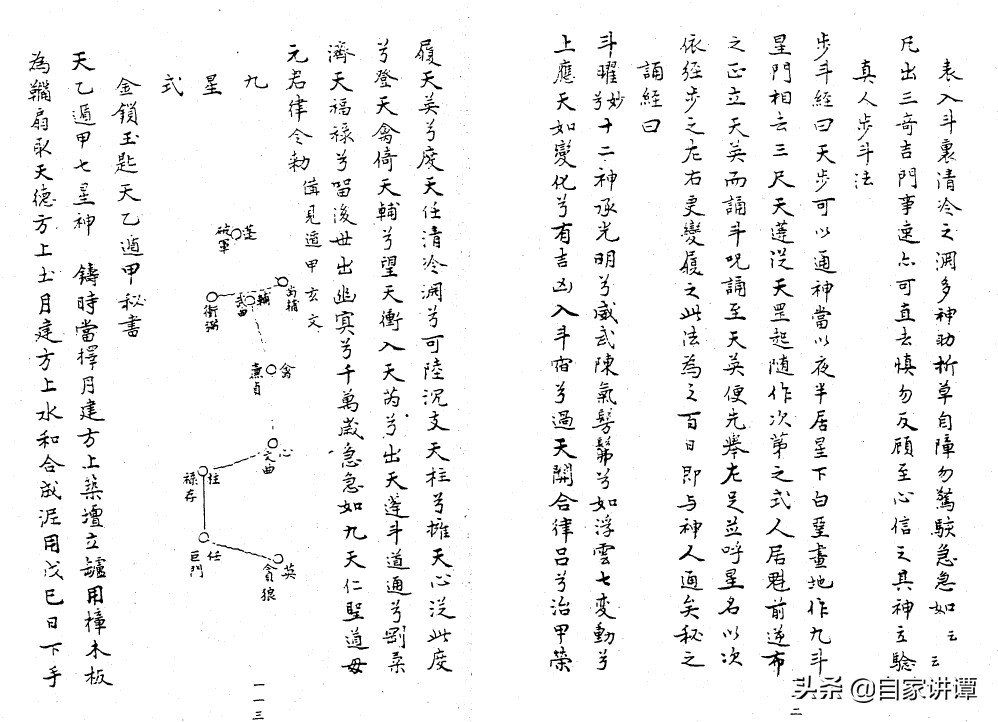 表入斗裏清冷之淵多神助折草自障勿驚駭急急如云云
凡出三奇吉門事速亦可直去慎勿反顧至心信之其神立驗
真人步斗法
步斗經曰天步可以通神當以夜半居星下白堊畫地作九斗
星門相去三尺天蓬從天罡起隨作次第之式人居魁前逆布
之正立天英而誦斗呪誦至天英便先舉左足並呼星名以次
依經步之左右更變履之此法為之百日即与神人通矣秘之
誦經曰
斗曜妙兮十二神承光明兮威武陳氣髣髴兮如浮雲七變動兮
上應天如變化兮有吉凶入斗宿兮過天關合律呂兮治甲榮
二
履天英兮度天任清冷淵兮可陸沉支天柱兮擁天心從此度
兮登天禽倚天輔兮望天衝入天芮兮出天蓬斗道通兮剛柔
濟天福祿兮留後世出幽冥兮千萬歲急急如九天仁聖道毋
元君律令勅
俱見遁甲玄文
九星式
蓬
破軍
芮
輔
武曲
衝
禽
廉貞
心
文曲
柱
祿存
任
巨門
英
貪狼
金鎖玉匙天乙遁甲秘書
天乙遁甲七星神 鑄時當擇月建方上築壇立罏用樟木板
為鞴扇取天德方上土月建方上水和合成泥用戊巳日下手
一一三
头条 @自家讲谭